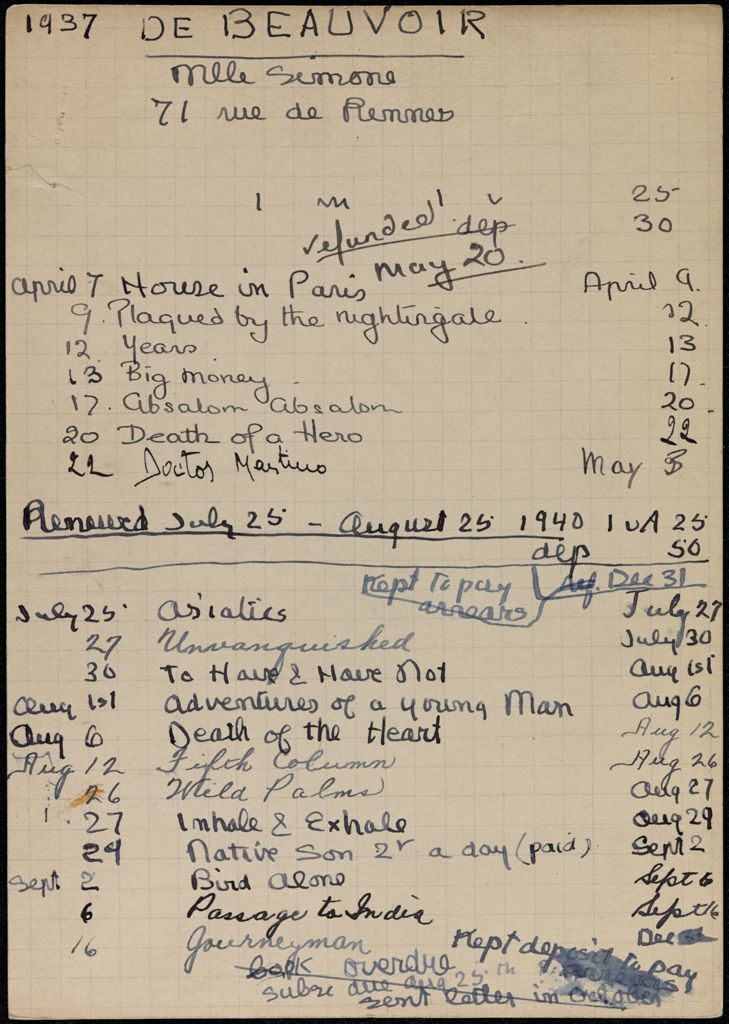 1937 DE BEAUVOIR
Mlle Simone
71 rue de Rennes
1 m 1 v 25
refunded dep 30
May 20.
April 7 House in Paris April 9.
9. Plagued by the nightingale. 12
12 Years. 13
13 Big money. 17.
17. Absalom Absalom 20.
20 Death of a Hero 22
22 Doctor Martino May 3
Renewed July 25 - August 25 1940 1 v A 25
dep 50
Kept to pay ref. Dec 31
arrears
July 25 Asiatics July 27
27 Unvanquished July 30
30 To Have & Have Not Aug 1st
Aug 1st Adventures of a young Man Aug 6
Aug 6 Death of the Heart Aug 12
Aug 12 Fifth Column Aug 26
26 Wild Palms Aug 27
27 Inhale & Exhale Aug 29
29 Native Son 2r a day (paid) Sept 2
Sept 2 Bird Alone Sept 6
6 Passage to India Sept 16
16 Journeyman Dec
Kept deposit to pay
book overdue
subsc due Aug 25th
sent letter in October